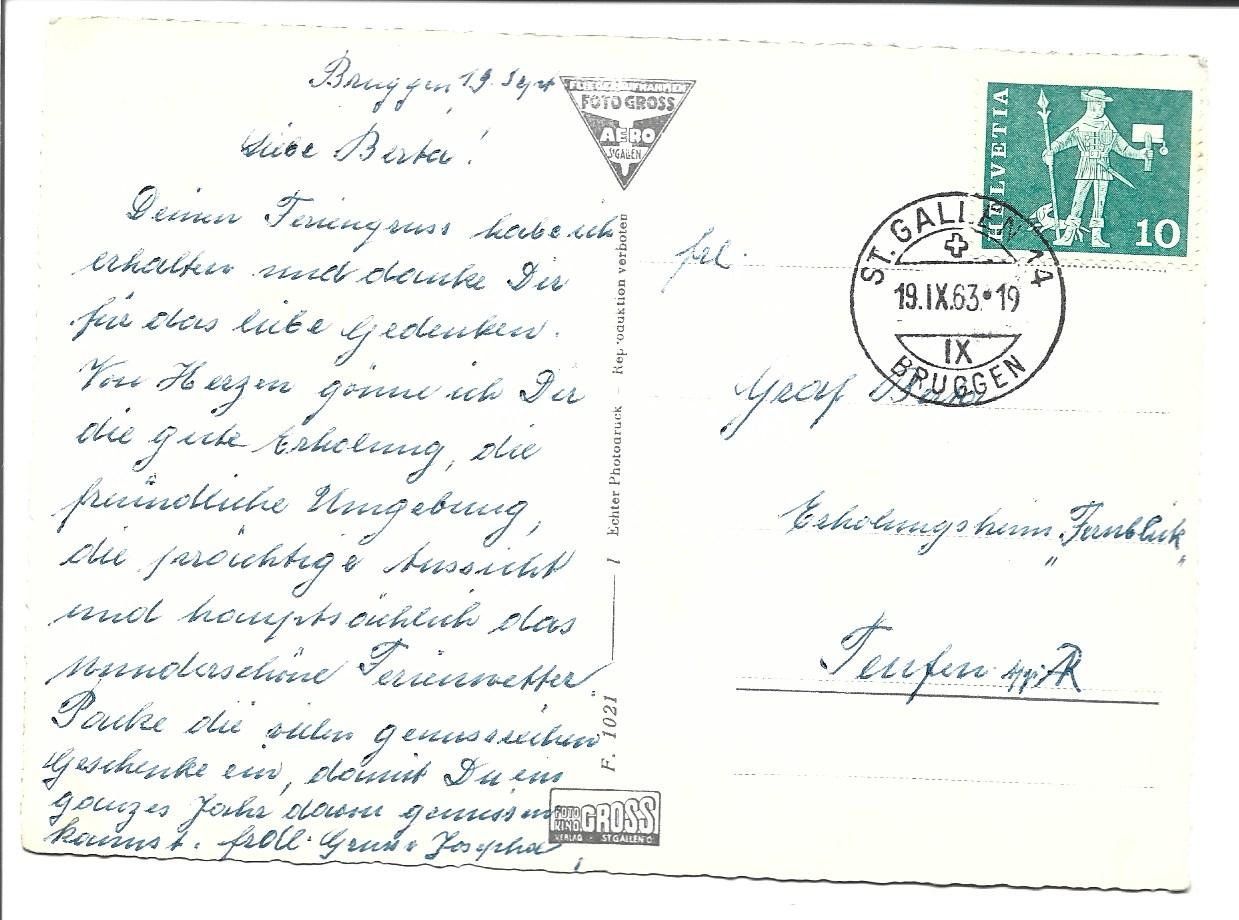 Bruggen, 19. Sept
Liebe Berta!
Deinen Feriengruss habe ich
erhalten und danke Dir
für das liebe Gedenken.
Von Herzen gönne ich Dir
die gute Erholung, die
freundliche Umgebung,
die prächtige Aussicht
und hauptsächlich das
wunderschöne Ferienwetter.
Packe die vielen genussreichen
Geschenke ein, damit Du ein
ganzes Jahr davon geniessen
kannst. frdl. Gruss Josepha
FLUGAUFNAHMEN
FOTO GROSS
AERO
ST.GALLEN
Echter Photodruck – Reproduktion verboten
F. 1021
FOTO
KINO
GROSS
VERLAG - ST GALLEN O
HELVETIA
10
ST. GALLEN 14
19.IX.63.19
IX
BRUGGEN
frl.
Graf Berta
Erholungsheim „Fernblick"
Teufen App. AR